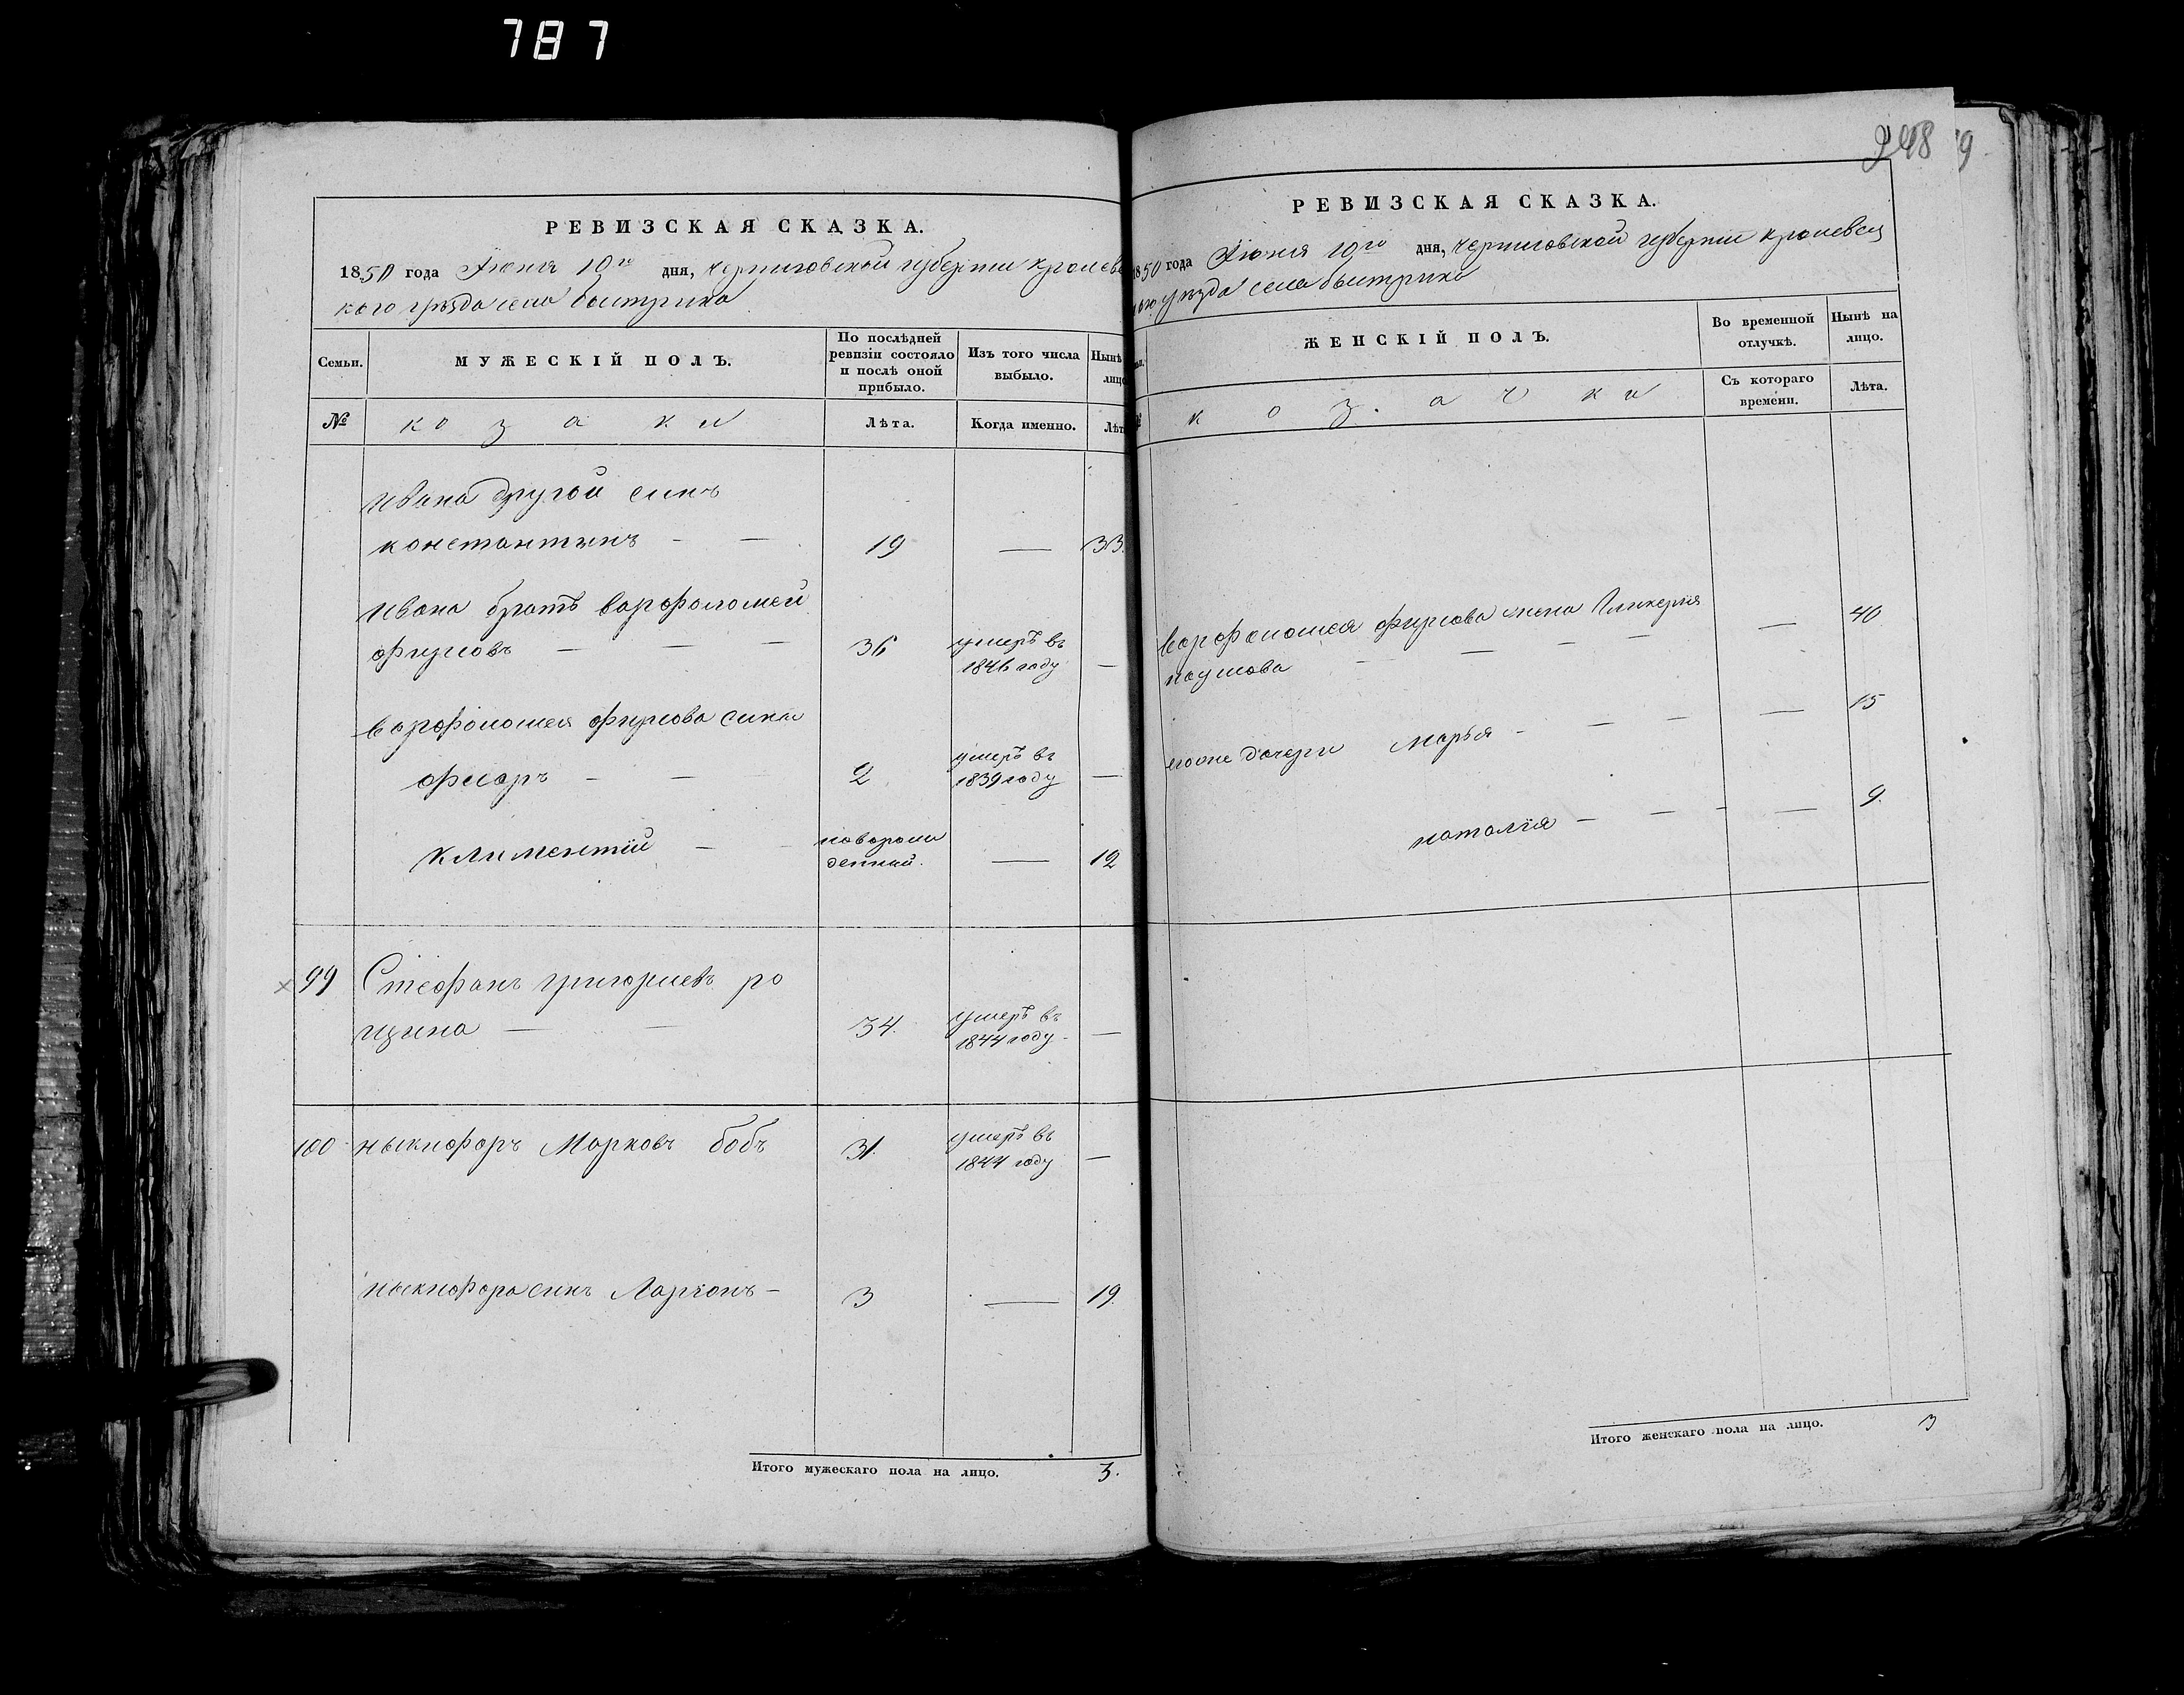 787
248
РЕВИЗСКАЯ СКАЗКА.
1850 года Июня 10го дня, черниговской губернии кролевец
кого уезда села быстрика
Семьи. МУЖЕСКІЙ ПОЛЪ. По послѣдней ревизіи состояло и послѣ оной прибыло. Изъ того числа выбыло. Нынѣ лицо
№ козаки Лѣта. Когда именно. Лѣт
Ивана другой синъ
константинъ — — 19 — 33.
Ивана братъ варфоломей
фирсовъ — — — 36 умеръ въ 1846 году —
варфоломея фирсова сини
флоръ — — 2 умеръ въ 1839 году —
климентій — — новорож денный. — 12
99 Стефанъ григориевъ ро
щина — — 34. умеръ въ 1844 году —
100 ныкифоръ Марковъ бобъ 31. умеръ въ 1844 году —
ныкифора синъ Ларіонъ — 3 — 19.
Итого мужескаго пола на лицо. 3.
РЕВИЗСКАЯ СКАЗКА.
1850 года Июня 10го дня, черниговской губернии кролевец
кого уезда села быстрика
ЖЕНСКІЙ ПОЛЪ. Во временной отлучкѣ. Нынѣ на лицо.
козачки Съ котораго времени. Лѣта.
варфоломея фирсова жена Гликерия
наумова — — — — 40
егоже дочери Марья — — — — 15
наталия — — — — 9.
Итого женскаго пола на лицо. 3